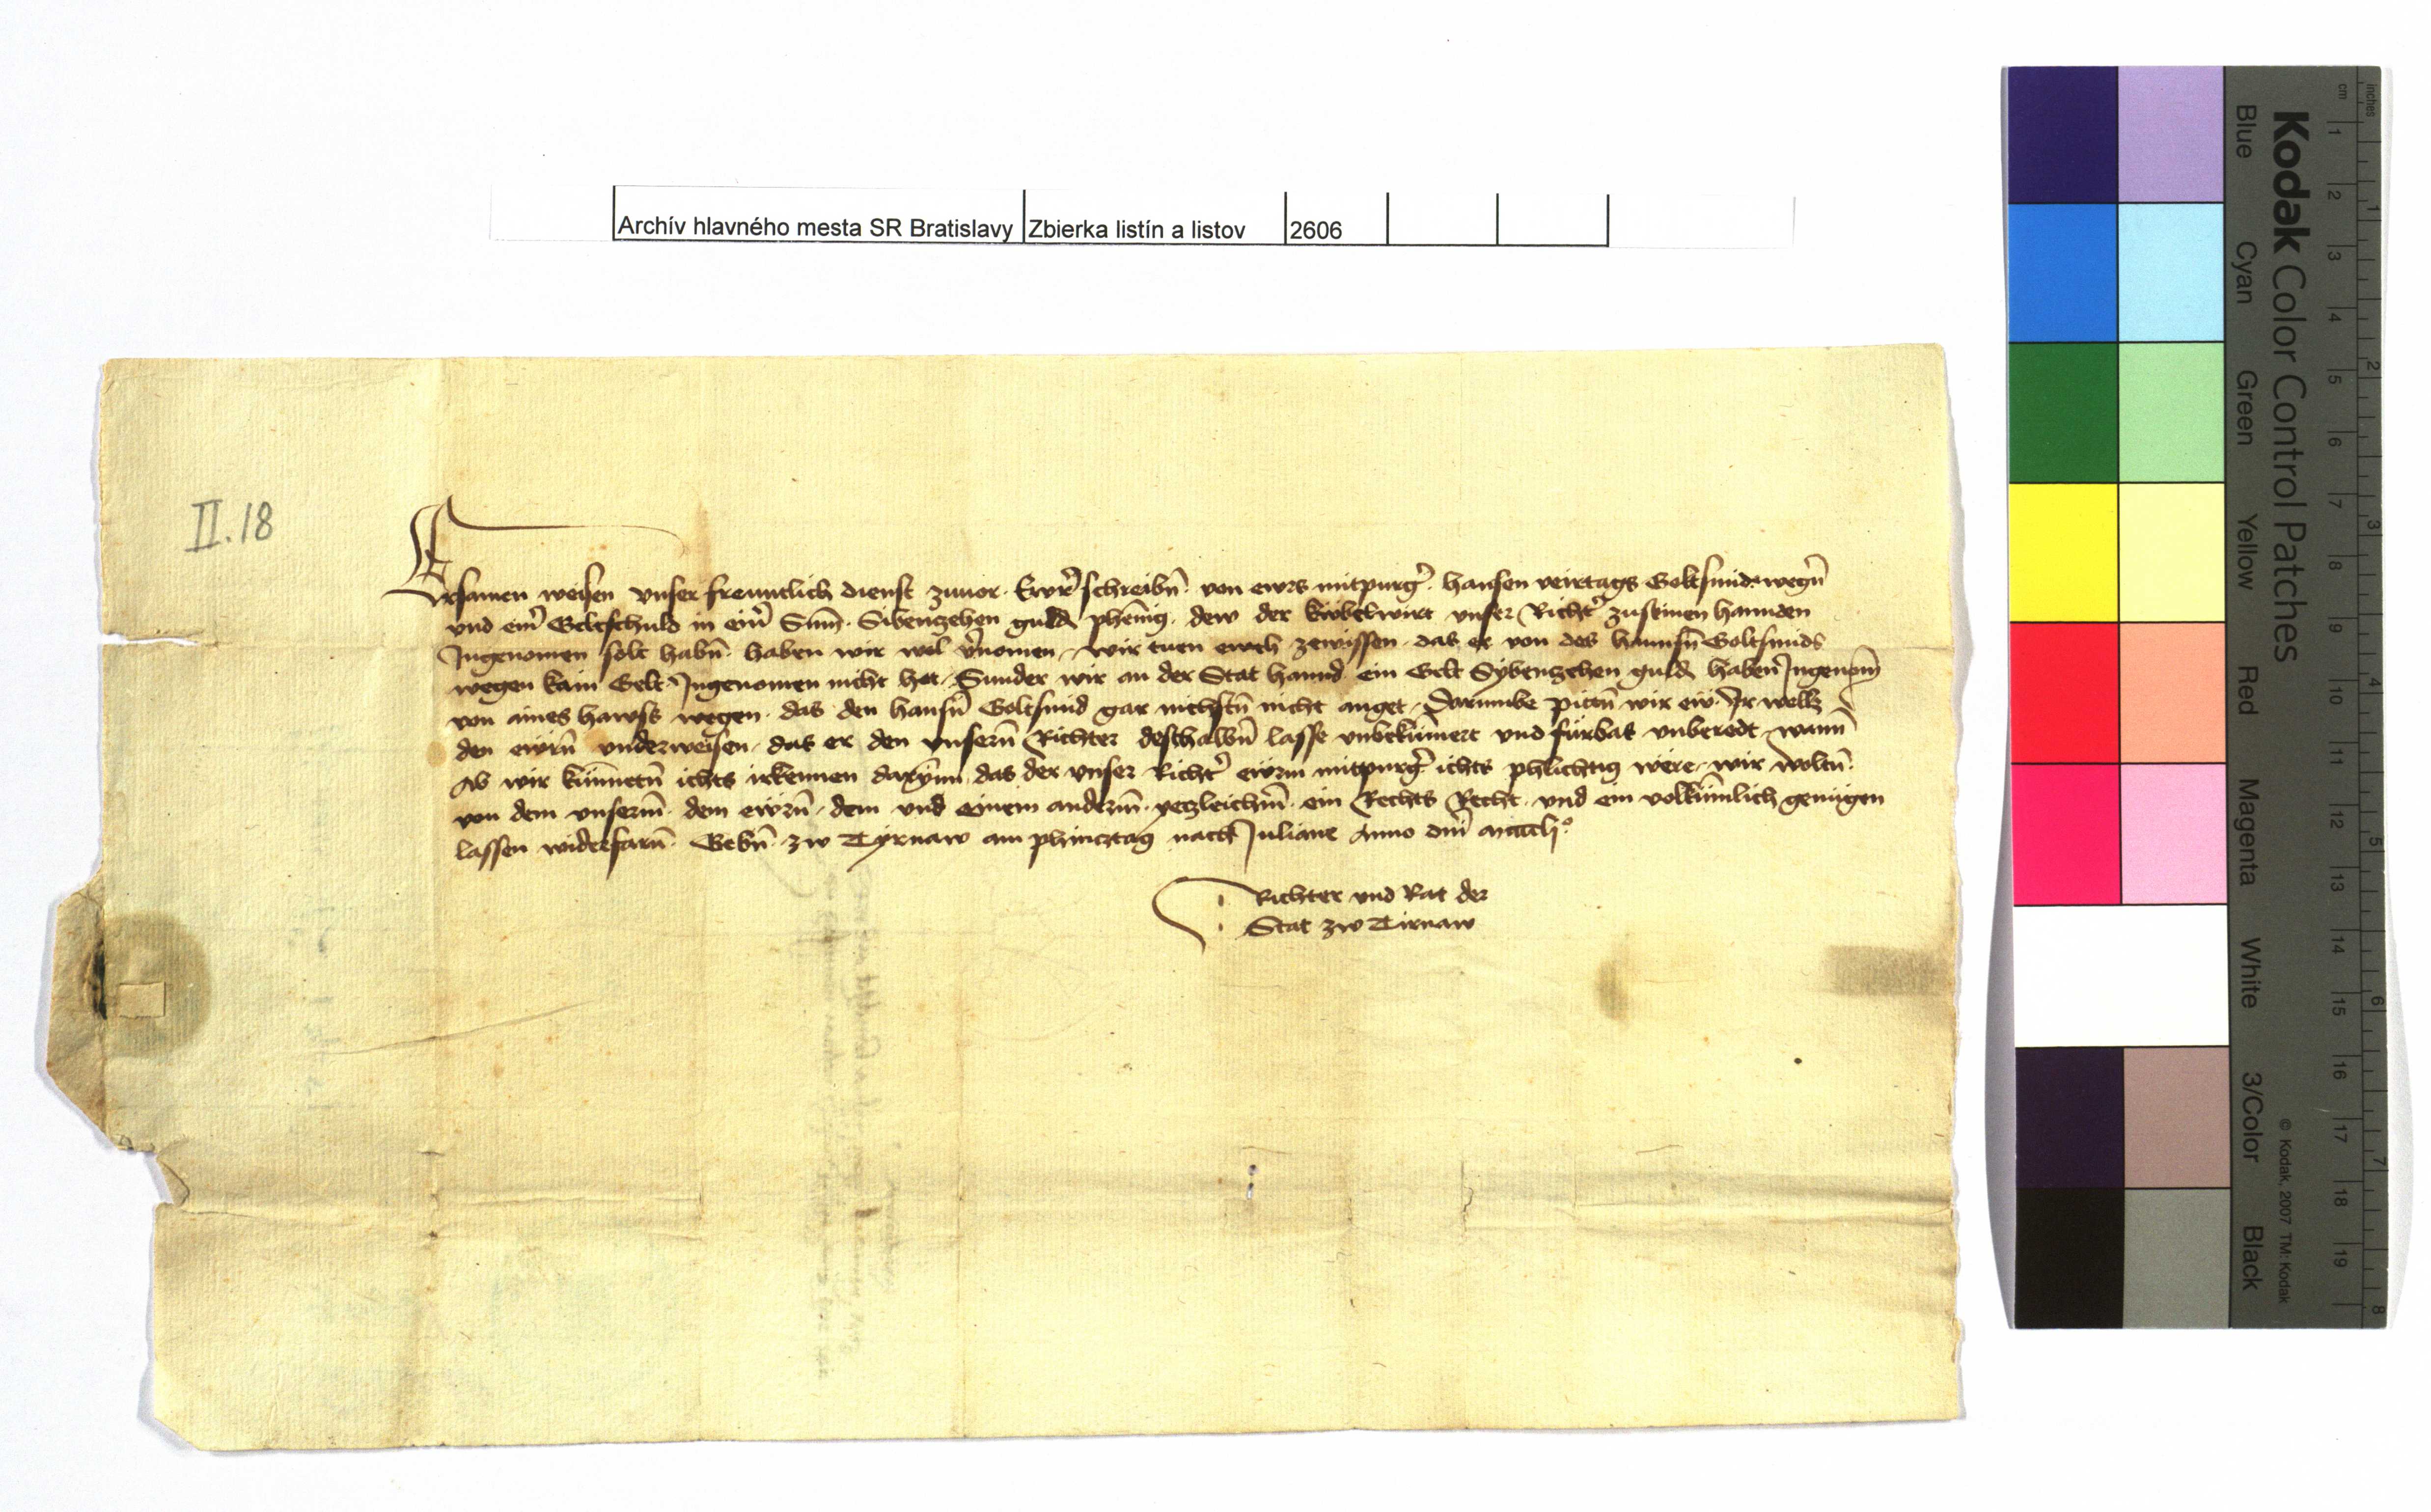 Archív hlavného mesta SR Bratislavy Zbierka listín a listov 2606
II.18
Ersamen weisen vnser freuntlich dienst zuuor. Ewr schreibn̄ von ewrs mitpurg̉ hansen veirtags Goltsmids wegn̄
vnd ein̉ Geltschuld in ein̉ Sum̄. Sibenzehen guld phēnig. dew der kubelwirt vnser Richt̉ zu seinen hannden
Ingenomen solt habn̄. haben wir wol v̉nomen. wir tuen ewch zewissen. das er von des hannsn̄ Goltsmids
wegen kain Gelt Ingenomen nicht hat. Sunder wir an der Stat hannd ein Gelt Sybenzehen guld haben Ingenom̄
von aines hawss wegen. das den hansn̄ Goltsmid gar nichstn̄ nicht anget. Darumbe pittn̄ wir ew. Ir wellt
den ewrn̄ vnderweisen. das er den vnsern̄ Richter deshalbn̄ lasse vnbekūmert vnd fürbas vnberedt. wann̄
Ab wir kūnnetn̄ ichts irkennen darynn. das der vnser Richt̉ ewrm mitpurg̉ ichts phlichtig were. wir woltn̄.
von dem vnserm̄. dem ewrn̄. dem vnd einem anderm̄. yetzleichm̄. ein Rechts Recht. vnd ein volkūmlich genügen
lassen widerfarn̄. Gebn̄ zw Tyrnaw am phincztag nach Juliane Anno dn̄i
Richter vnd Rat der
Stat zw Tirnaw
Kodak Color Control Patches
Blue Cyan Green Yellow Red Magenta White 3/Color Black
inches 1 2 3 4 5 6 7 8
cm 1 2 3 4 5 6 7 8 9 10 11 12 13 14 15 16 17 18 19
© Kodak, 2007 TM: Kodak